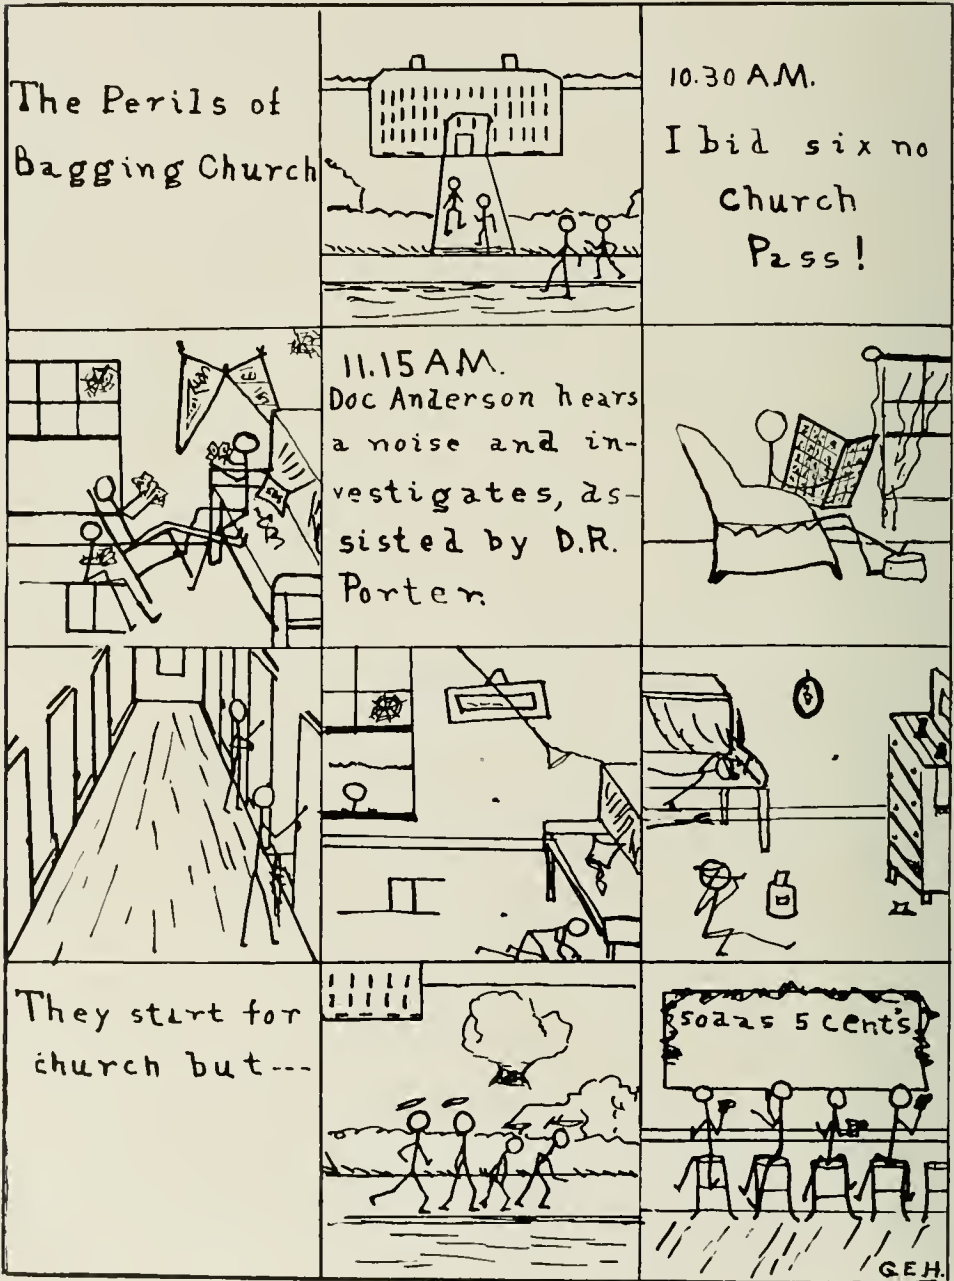 The Perils of
Bagging Church
10.30 A.M.
I bid six no
Church
Pass!
11.15 A.M.
Doc Anderson hears
a noise and in-
vestigates, as-
sisted by D.R.
Porter.
They start for
church but---
sodas 5 cents
G.E.H.